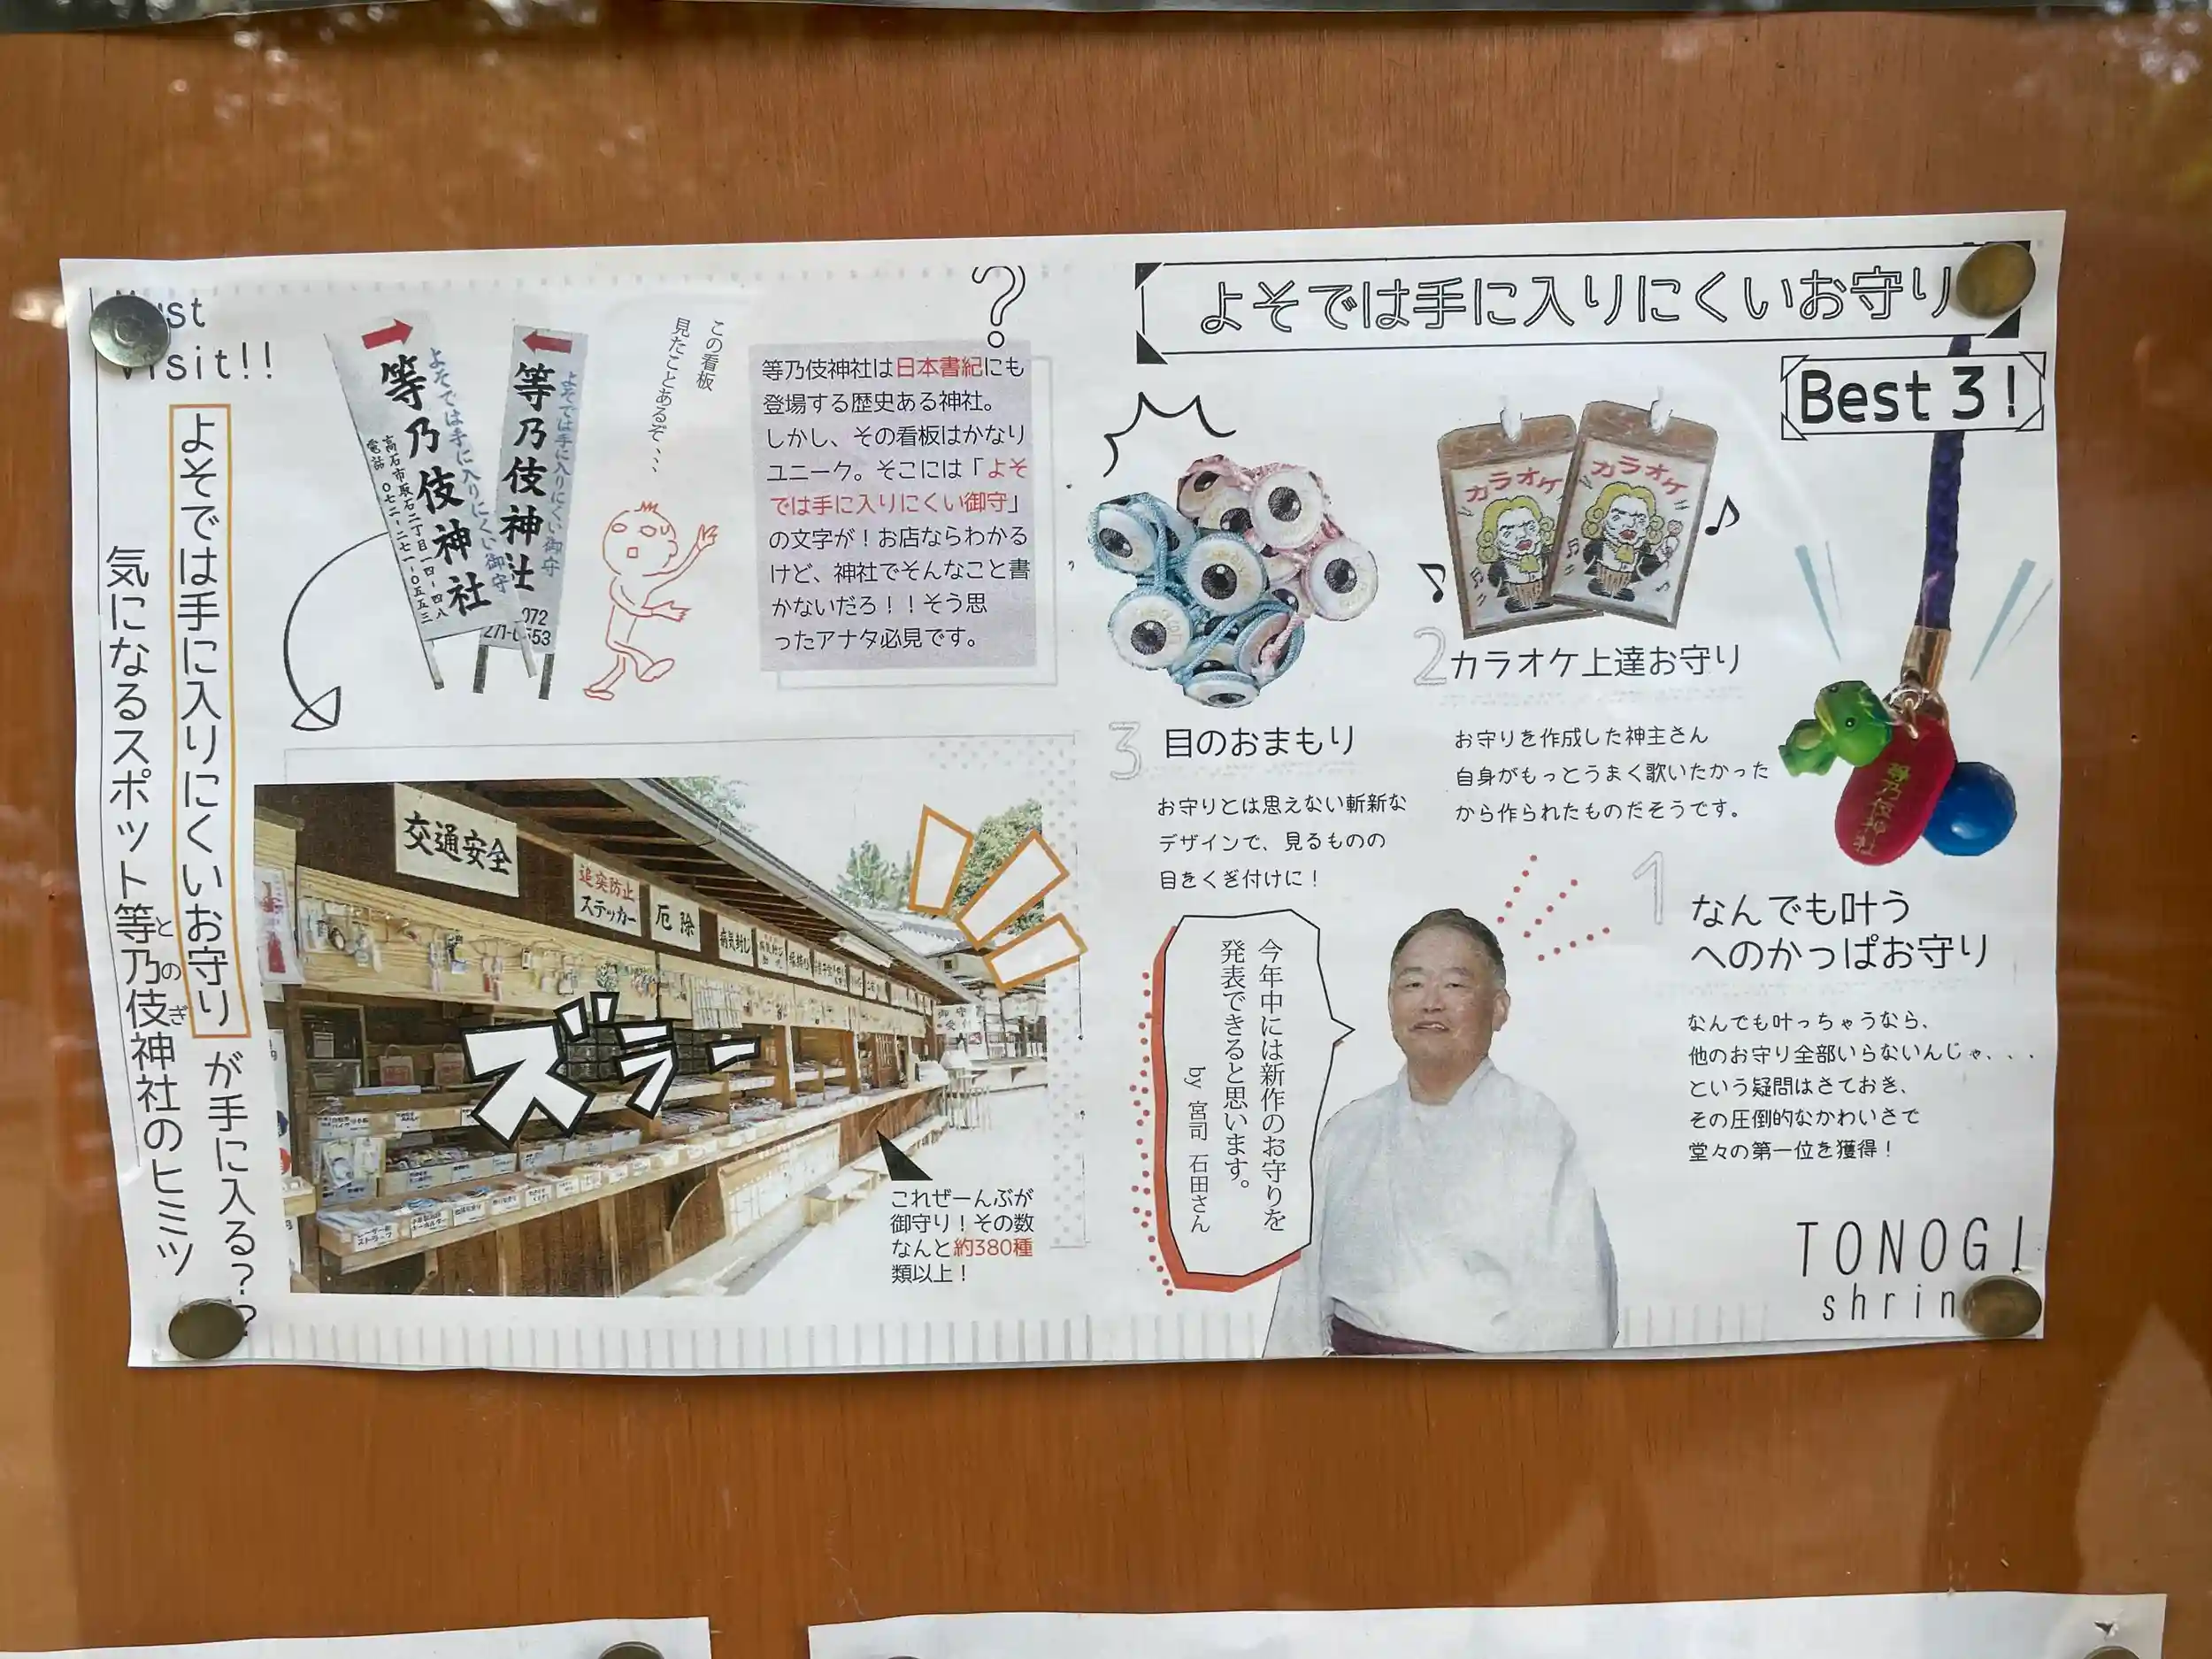 よそでは手に入りにくいお守りが手に入る??
気になるスポット等乃伎神社のヒミツ
との ぎ
等乃伎神社
よそでは手に入りにくい御守
高石市取石二丁目一四-四八
電話 〇七二-二七一-〇五五三
等乃伎神社
よそでは手に入りにくい御守
この看板
見たことあるぞ、、、
?
等乃伎神社は日本書紀にも
登場する歴史ある神社。
しかし、その看板はかなり
ユニーク。そこには「よそ
では手に入りにくい御守」
の文字が！お店ならわかる
けど、神社でそんなこと書
かないだろ！！そう思
ったアナタ必見です。
交通安全
追突防止
ステッカー
厄除
病気封じ
ズラー
これぜーんぶが
御守り！その数
なんと約380種
類以上！
よそでは手に入りにくいお守り
Best 3!
3 目のおまもり
お守りとは思えない斬新な
デザインで、見るものの
目をくぎ付けに！
カラオケ
カラオケ
2 カラオケ上達お守り
お守りを作成した神主さん
自身がもっとうまく歌いたかった
から作られたものだそうです。
等乃伎神社
1 なんでも叶う
へのかっぱお守り
なんでも叶っちゃうなら、
他のお守り全部いらないんじゃ、、、
という疑問はさておき、
その圧倒的なかわいさで
堂々の第一位を獲得！
今年中には新作のお守りを
発表できると思います。
by 宮司 石田さん
TONOGI